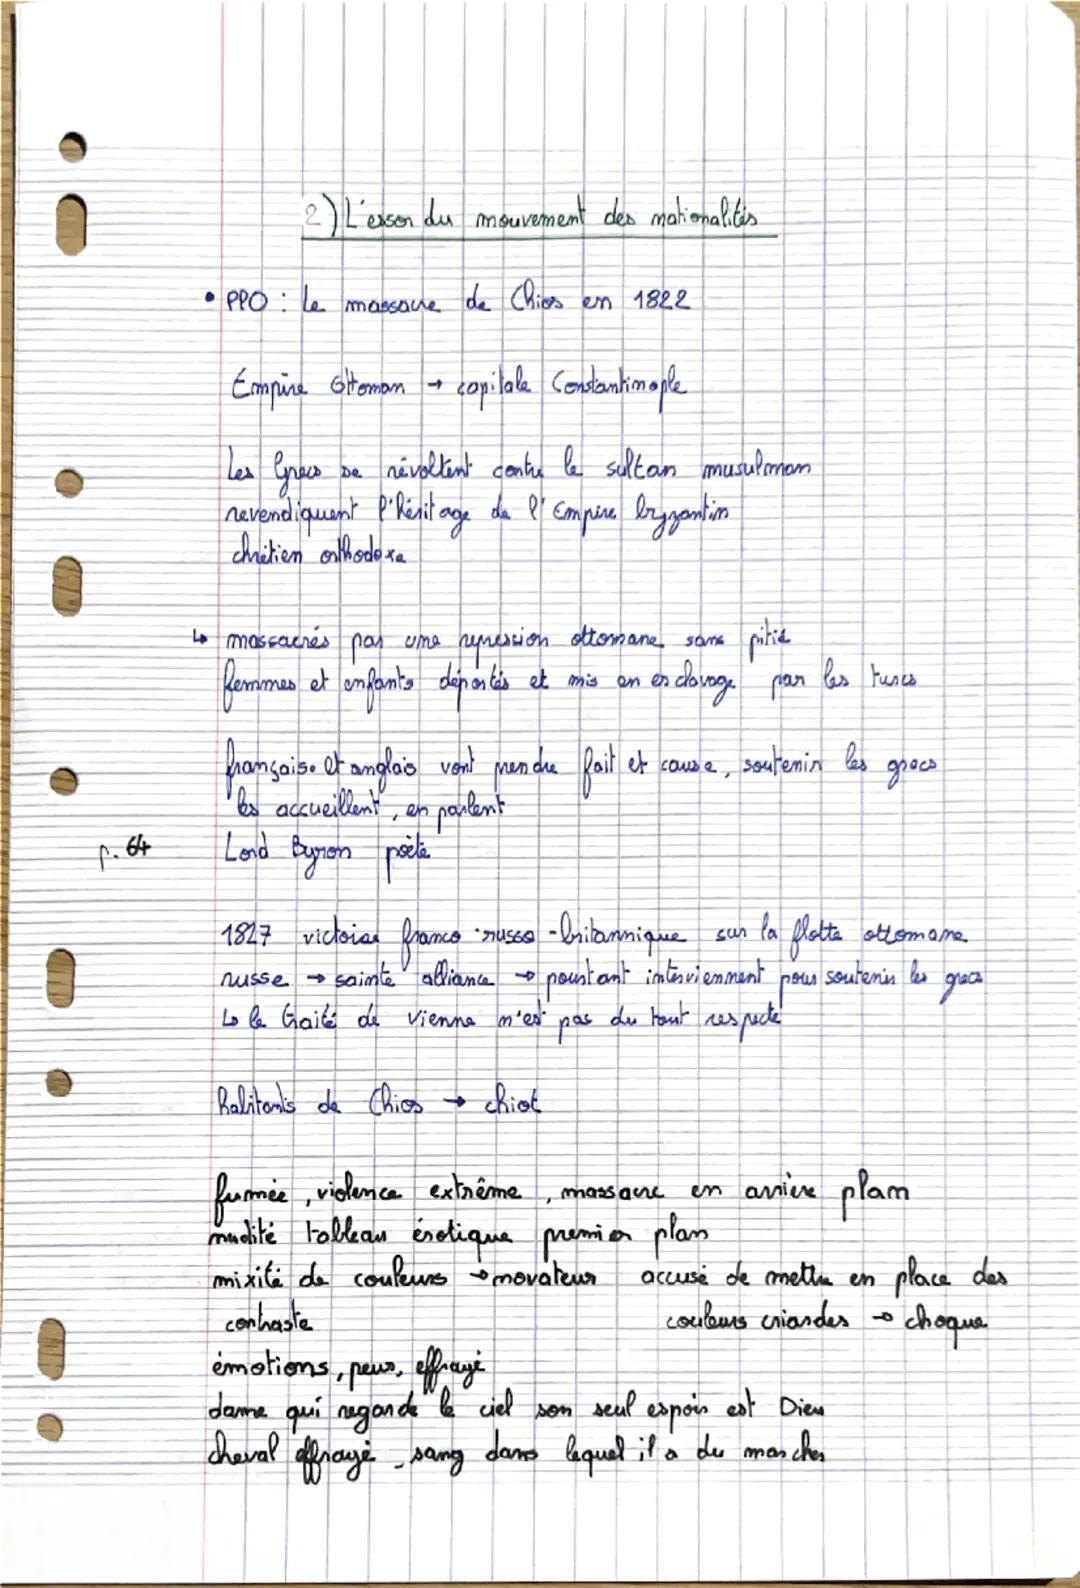 2) L'essor du mouvement des nationalités
• PPO : Le massacre de Chios en 1822
Empire Ottoman → capitale Constantinople
Les Grecs se révoltent contre le sultan musulman
revendiquent l'héritage de l'Empire byzantin
chrétien orthodoxe
↳ massacrés par une repression ottomane sans pitié
femmes et enfants déportés et mis en esclavage par les turcs
française et anglais vont prendre fait et cause, soutenir les grecs
les accueillent, en parlent
p. 64 Lord Byron poète
1827 victoire franco-russo-britannique sur la flotte ottomane
russe → sainte alliance → pourtant interviennent pour soutenir les grecs
↳ le traité de Vienne n'est pas du tout respecté
habitants de Chios → chiot
fumée, violence extrême, massacre en arrière plan
nudité tableau érotique premier plan
mixité de couleurs → novateur accusé de mettre en place des
contraste couleurs criardes → choque
émotions, peur, effrayé
dame qui regarde le ciel son seul espoir est Dieu
cheval effrayé, sang dans lequel il a du marcher